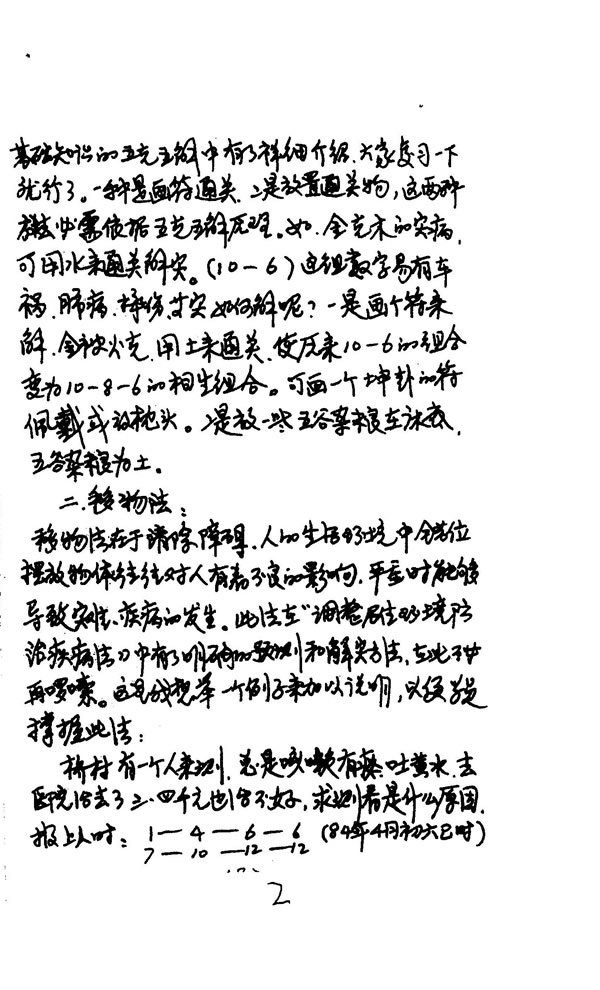 基础知识的五克五解中有了详细介绍.大家复习一下
就行了。一种是画符通关.二是放置通关物,这两种
方法必需依据五克五解原理。如.金克木的灾病,
可用水来通关解灾。(10-6)这组数字易有车
祸.肺病.摔伤等灾如何解呢?一是画个符来
解.金被火克.用土来通关.使原来10-6的组合
变为10-8-6的相生组合。可画一个坤卦的符
佩戴或放枕头。二是放一些五谷杂粮在床底.
五谷杂粮为土。
二.移物法:
移物法在于清除障碍.人的生活环境中错位
摆放物体往往对人有着不良的影响.严重时能够
导致灾性、疾病的发生。此法在“调整居住环境防
治疾病法”中有了明确的预测和解灾方法,在此不必
再啰嗦。这里我想举一个例子来加以说明,以便
掌握此法:
桥村有一个人来测.总是咳嗽有痰.吐黄水.去
医院治去了三.四千元也治不好,求测看是什么原因.
报上人时: 1-4-6-6 (84年4月初六巳时)
7-10-12-12
2